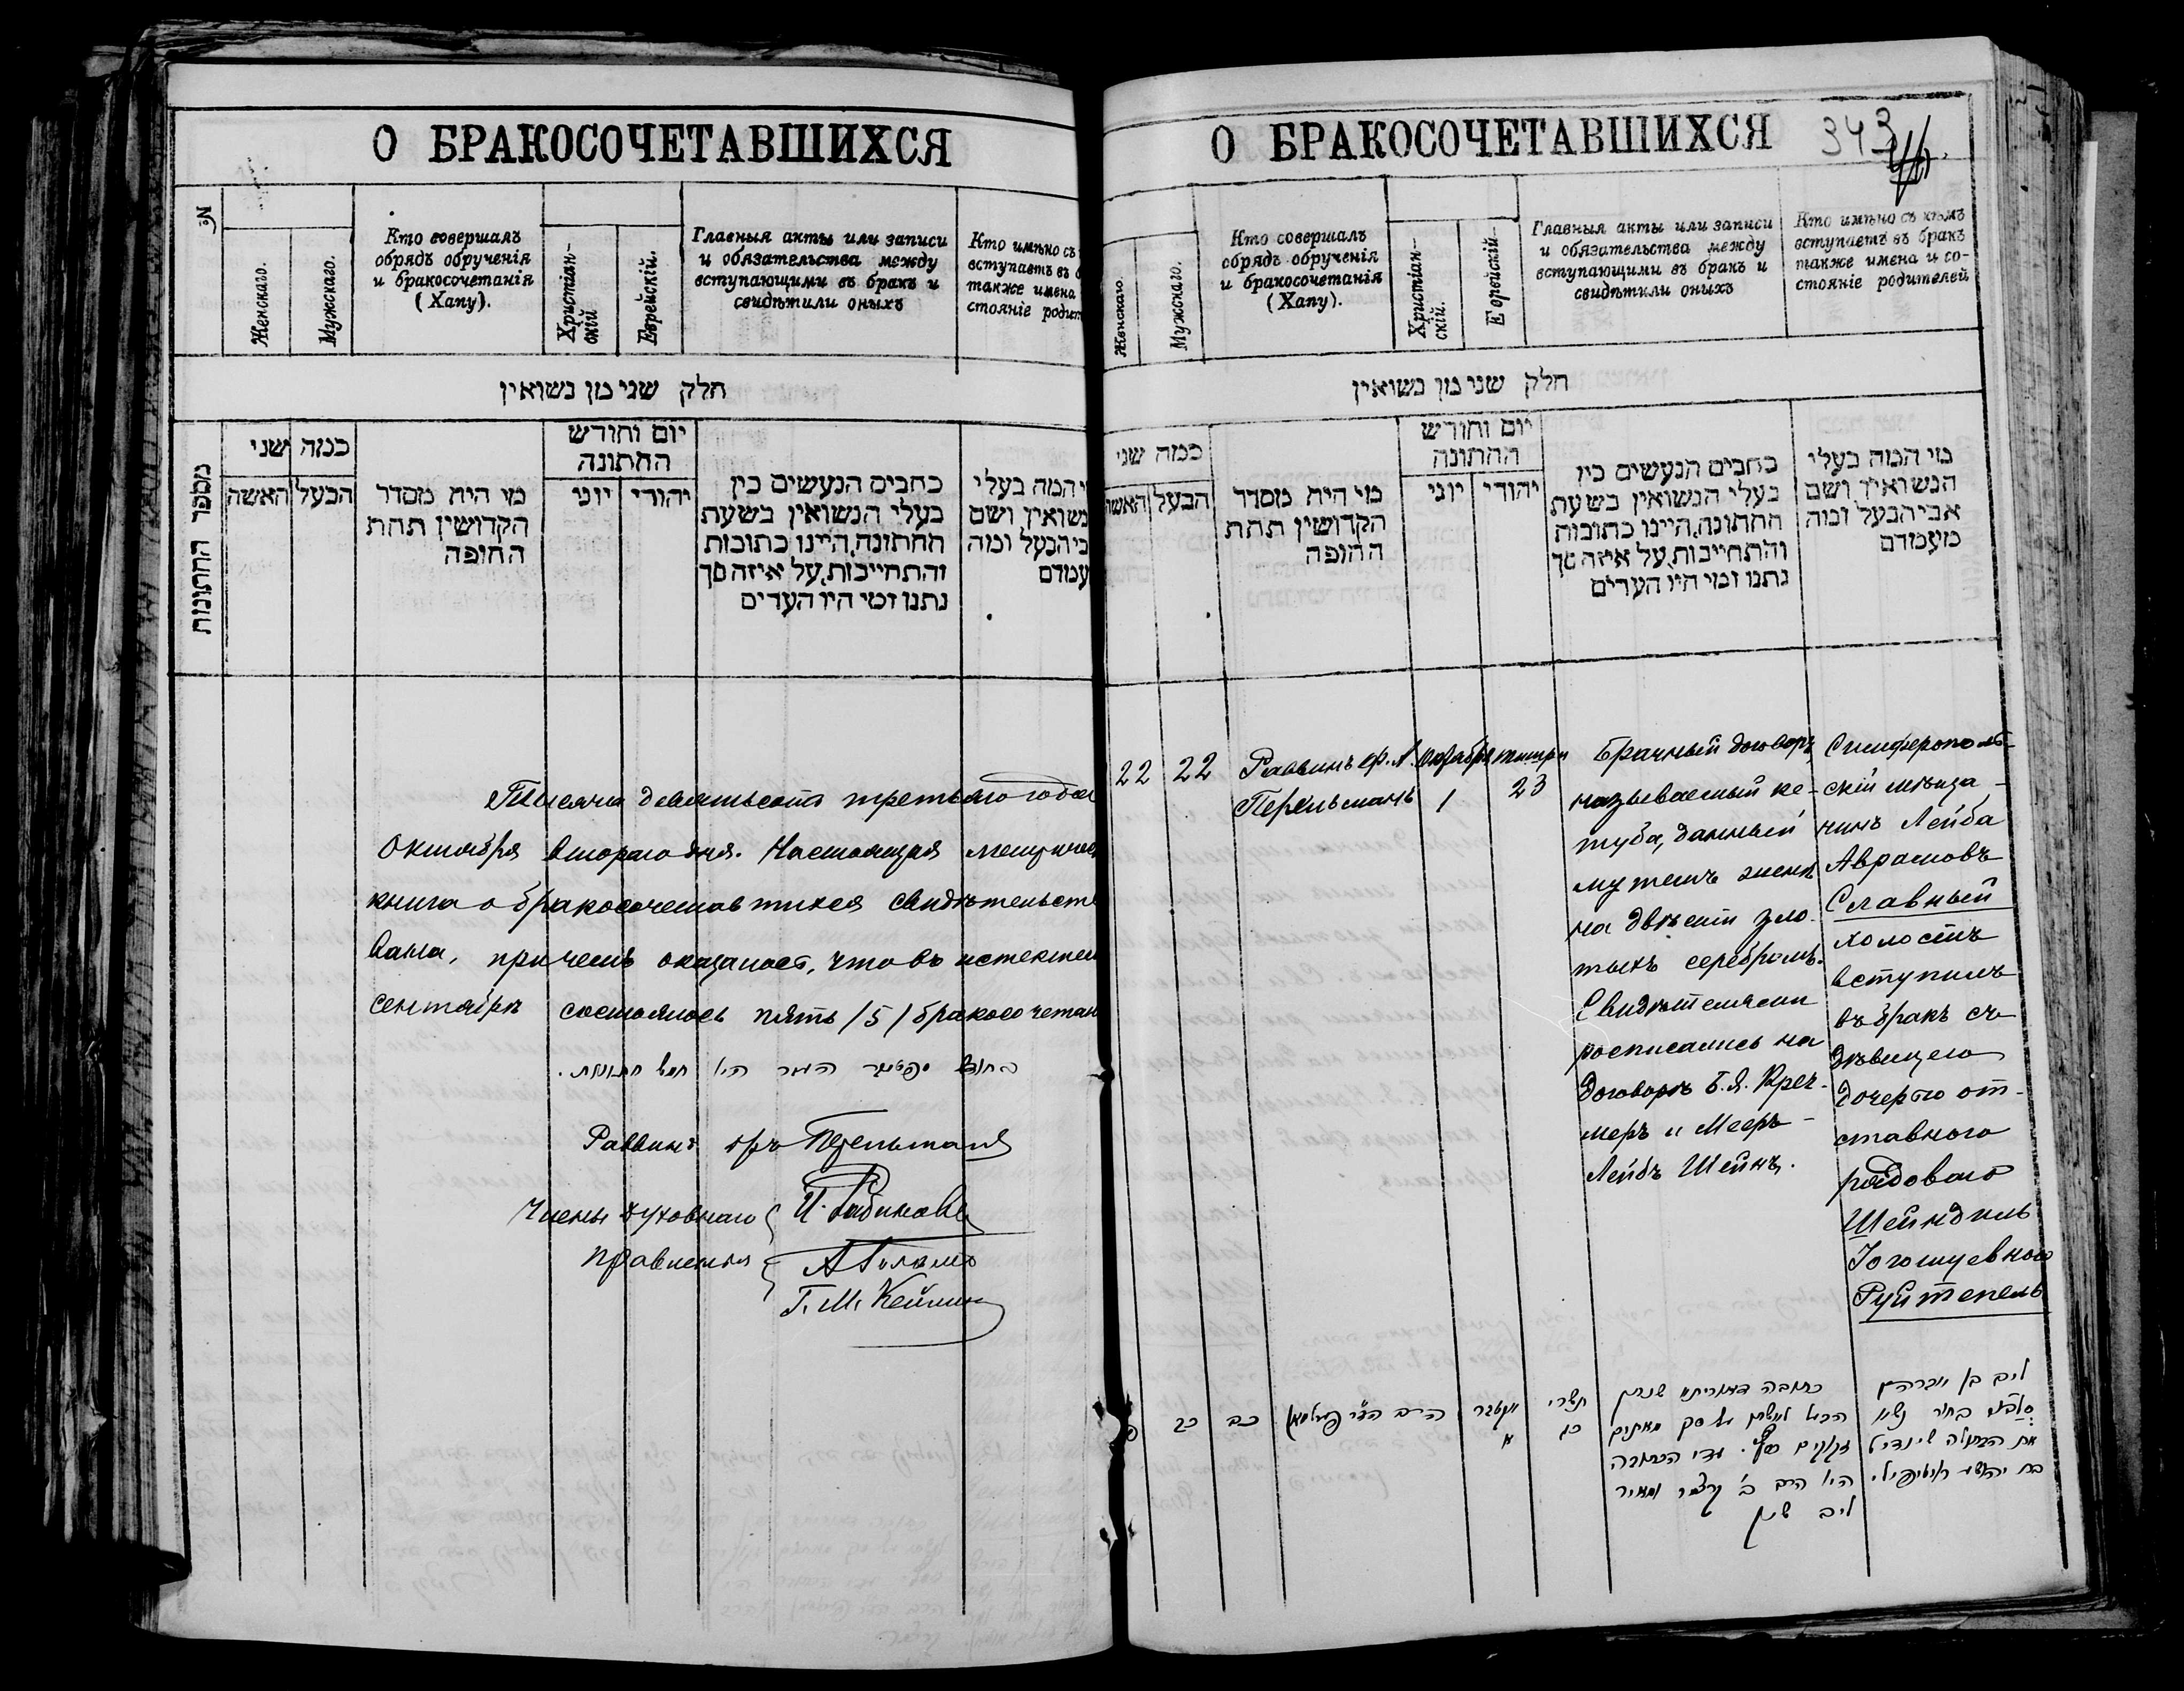 О БРАКОСОЧЕТАВШИХСЯ
№
Женскаго.
Мужскаго.
Кто совершалъ
обрядъ обрученія
и бракосочетанія
(Хапу).
Христіан-
скій
Еврейскій.
Главныя акты или записи
и обязательства между
вступающими въ бракъ и
свидѣтили оныхъ
Кто имѣно съ
вступаетъ въ
также имена
стояніе
חלק שני מן נשואין
מספר החתונות
כמה שני
האשה
הבעל
מי הית מסדר
הקדושין תחת
החופה
יום וחודש
החתונה
יוני
יהודי
כתבים הנעשים בין
בעלי הנשואין בשעת
החתונה, היינו כתובות
והתחייבות, על איזה סך
נתנו ומי היו העדים
המה בעלי
נשואין, ושם
הבעל ומה
עמדם
Тысяча девятьсотъ третьяго года
Октября второго дня. Настоящая
книга о бракосочетавшихся
вана, причемъ оказалось, что въ
Сентябрѣ состоялось пять /5/
בחודש סעפטעמבר היו חמש חתונות.
Раввинъ Перельманъ
Члены духовнаго
правленія
Г. М.
О БРАКОСОЧЕТАВШИХСЯ
343
Женскаго.
Мужскаго.
Кто совершалъ
обрядъ обрученія
и бракосочетанія
(Хапу).
Христіан-
скій.
Еврейскій
Главныя акты или записи
и обязательства между
вступающими въ бракъ и
свидѣтили оныхъ
Кто имѣно съ кѣмъ
вступаетъ въ бракъ
также имена и со-
стояніе родителей
חלק שני מן נשואין
כמה שני
האשה
הבעל
מי הית מסדר
הקדושין תחת
החופה
יום וחודש
החתונה
יוני
יהודי
כתבים הנעשים בין
בעלי הנשואין בשעת
החתונה, היינו כתובות
והתחייבות, על איזה סך
נתנו ומי היו העדים
מי המה בעלי
הנשואין, ושם
אבי הבעל ומה
מעמדם
22
22
Раввинъ
Перельманъ
Октября
1
Тишри
23
Брачный договоръ,
называемый ке-
туба, данный
мужемъ женѣ
на двѣсти зло-
тыхъ серебромъ.
Свидѣтелями
росписались на
договорѣ Б. Я. Креч-
меръ и Мееръ-
Лейбъ Шейнъ.
Симферополь-
скій мѣща-
нинъ Лейба
Аврамовъ
Славный
холостъ
вступилъ
въ бракъ съ
дѣвицею
дочерью от-
ставного
рядового
Шейндиль
Іогошуевною
Руйтепель
כב
כב
הרב
אקטבר
א
תשרי
כג
כתובה דאוריתא שנתן
הבעל לאשתו על סך מאתים
זהובים כסף. עדי הכתובה
היו הרב ב' קרצמר ומאיר
ליב שיין
ליב בן אברהם
סלבני בחור נשא
את הבתולה שיינדיל
בת יהושע